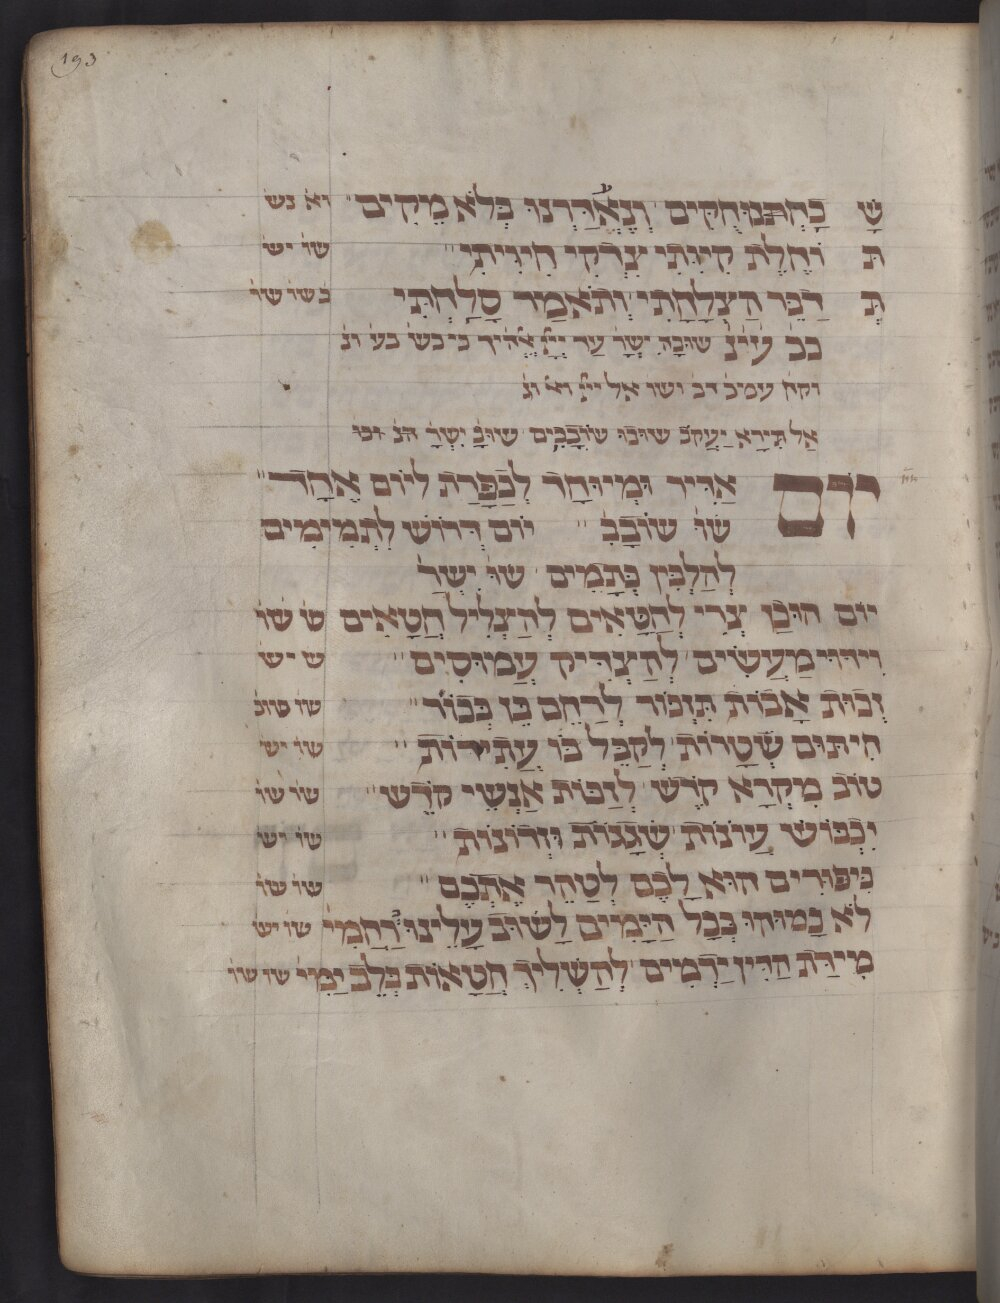 193
שָ כְּחָתְמוּ חֻקִּים וְנֶאֱדָּרֵנוּ בְּלֹא מֵקִים וא נש
תּ וְיַחֶלֶת קִיוִּתִי צִדְקִי חִיוִּיתִי שו יש
תְּ דַבֵּר הַצְלָחָתִי וְתֹאמַר סָלַחְתִּי כשו שו
ככ עינ שובה ישר עד יי אלהיך כי כש בע ונ
וקח עמכ דב ושו אל יי וא ונ
אַל תִּירָא יַעֲקֹב שׁוּבוּ שׁוֹבָבִים שׁוּבָ יִשְׂרָ הנ
יום אַדִּיר וּמְיוּחָד לְכַפָּרַת לְיוֹם אֶחָד
שׁוּ שׁוֹבָבִ יוֹם דְּרוֹשׁ לִתְמִימִים
לְהַלְבִּין כְּתָמִים שׁוּ יִשְׂרָ
יום הוּכַן צֳרִי לְחֲטָאִים לְהַצְלִיל חֲטָאִים ש שו
וִידּוּי מַעֲשִׂים לְהַצְדִּיק עֲמוּסִים ש יש
זְכוּת אָבוֹת תִּזְכּוֹר לְרַחֵם בֵּן בְּכוֹר שו שוב
חִיתּוּם שְׁטָרוֹת לְקַבֵּל בּוֹ עֲתִירוֹת שו יש
טוֹב מִקְרָא קֹדֶשׁ לְזַכּוֹת אַנְשֵׁי קֹדֶשׁ שו שו
יִכְבּוֹשׁ עֲוֹנוֹת שְׁגָגוֹת וּזְדוֹנוֹת שו יש
כִּיפּוּרִים הוּא לָכֶם לְטַהֵר אֶתְכֶם שו שו
לֹא כָמוֹהוּ בְּכָל הַיָּמִים לָשׁוּב עָלֵינוּ רַחֲמֵי שו יש
מִידַּת הַדִּין יַרְמִים לְהַשְׁלִיךְ חֲטָאוֹת בְּלֵב יַמִּי שו שו